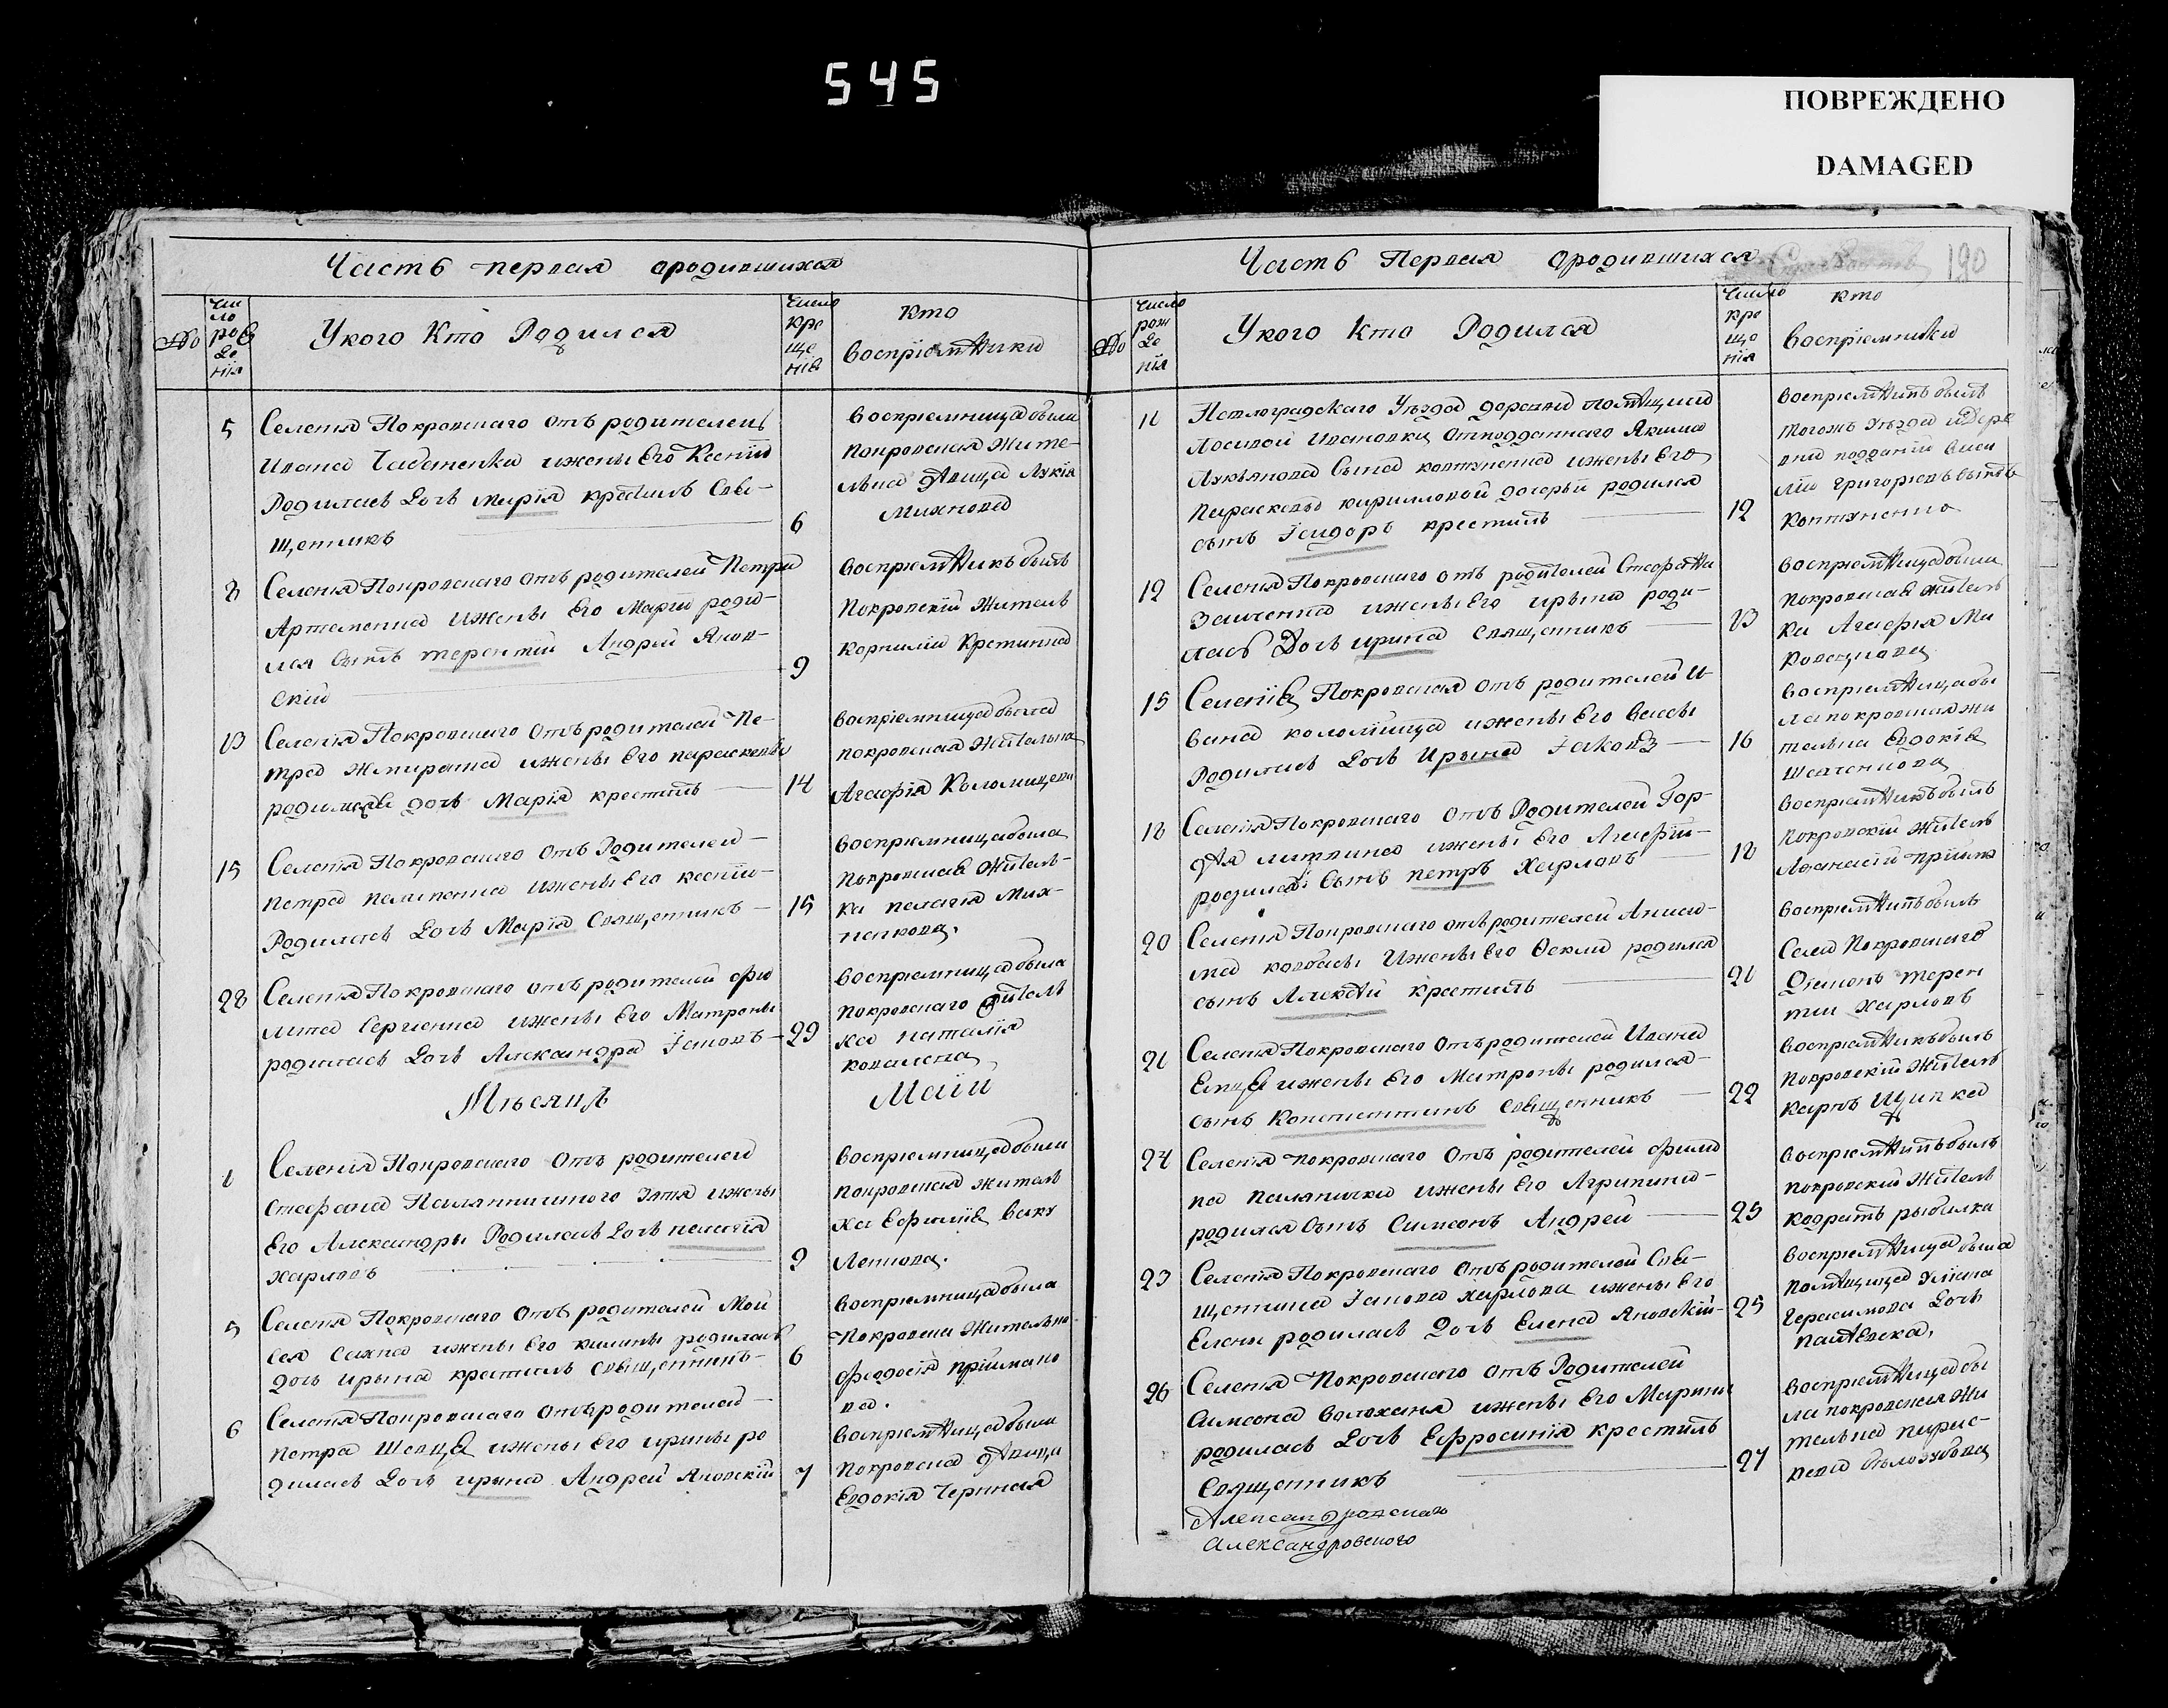 545
ПОВРЕЖДЕНО
DAMAGED
Часть первая ородившихся
Число рождения
У кого Кто Родился
Число крещенія
Кто
воспріемники
5
Селенія Покровскаго отъ родителей
Ивана Чабаненка ижены Его Ксеніи
Родилась Дочь Марія крестилъ Свя-
щенникъ
6
воспріемница была
покровская жите-
льна девица Лукія
Михнова
8
Селенія Покровскаго отъ родителей Петра
Артеменка ижены Его Маріи роди-
лся сынъ терентій Андрей Янов-
скій
9
воспріемникъ былъ
Покровскій житель
Корнилій
13
Селенія Покровскаго отъ родителей Пе-
тра ижены Его параскевы
родилась дочь Марія крестилъ
14
воспріемница была
покровская жителька
Агафія Коломицева
15
Селенія Покровскаго отъ Родителей
петра ижены Его ксеніи
Родилась Дочь Марія Священникъ
15
воспріемница была
покровская житель-
ка пелагія Мих-
28
Селенія Покровскаго отъ родителей
Сергіенка ижены Его Матроны
родилась Дочь Александра Іаковъ
29
воспріемница была
покровскаго житель
ка наталія
ковалева
Мѣсяцъ
Маіи
1
Селенія Покровскаго отъ родителей
стефана ижены
Его Александры Родилась Дочь пелагія
Харловъ
3
воспріемница была
покровская житель
ка Евфимія Ваку
Ленкова.
5
Селенія Покровскаго отъ родителей Мои
сея Сахна ижены Его родилась
дочь ирына крестилъ священникъ
6
воспріемница была
Покровска жителька
феодосія пріймако
ва.
6
Селенія Покровскаго отъ родителей
петра Шевца ижены Его ирины ро
дилась Дочь ирына Андрей Яновскій
7
воспріемница была
покровска девица
Евдокія Черниая
Часть Первая ородившихся
190
Число рожденія
У кого кто Родился
Число крещенія
кто
воспріемники
11
Павлоградскаго Уѣзда деревни помѣщици
Лосивой Ивановки отподданнаго Якима
Лукьянова Сына ковтуненка ижены Его
параскевы кирилловой дочерьи родился
сынъ Ісидоръ крестилъ
12
воспріемникъ былъ
тогожъ Уѣзда идере
вни подданій васи
лій григорьевъ сынъ
Ковтуненко
12
Селенія Покровскаго отъ родителей Стефана
Заиченка ижены Его ирына роди-
лась Дочь ирина Священникъ
13
воспріемница была
покровская житель
ка Агафія Ма
15
Селенія Покровская отъ родителей И
вана коломійца ижены Его васы
Родилась Дочь Ирына Іаковъ
16
воспріемница бы
ла покровская жи
тельна Евдокія
Шевченкова
18
Селенія Покровскаго отъ Родителей Гор-
дѣя литвина ижены Его Агафіи
родился Сынъ петръ Харловъ
18
воспріемникъ былъ
покровскій житель
Афанасій прійма
20
Селенія Покровскаго отъ родителей Аниси-
ма ковбасы Ижены Его Феклы родился
сынъ Алексѣй крестилъ
20
воспріемникъ былъ
Села Покровскаго
Діяконъ терен
тій Харловъ
21
Селенія Покровскаго отъ родителей Ивана
ижены Его Матроны родился
сынъ Констентинъ священникъ
22
воспріемникъ былъ
покровскій житель
карпъ Щипка
24
Селенія покровскаго отъ родителей фили
па ижены Его Агрипины
родился сынъ Симеонъ Андрей
25
воспріемникъ былъ
покровскій житель
кодратъ рыбалка
23
Селенія Покровскаго отъ родителей Свя-
щенника Іакова Харлова ижены Его
Елены родилась Дочь Елена Яновскій
25
воспріемница была
помѣщица уліяна
Герасимова Дочь
26
Селенія Покровскаго отъ Родителей
Симеона ижены Его Марины
родилась Дочь Ефросинія крестилъ
Священникъ
27
воспріемница бы
ла покровская жи
тельна парас-
кева бѣлозубова
Александровскаго
Александровского